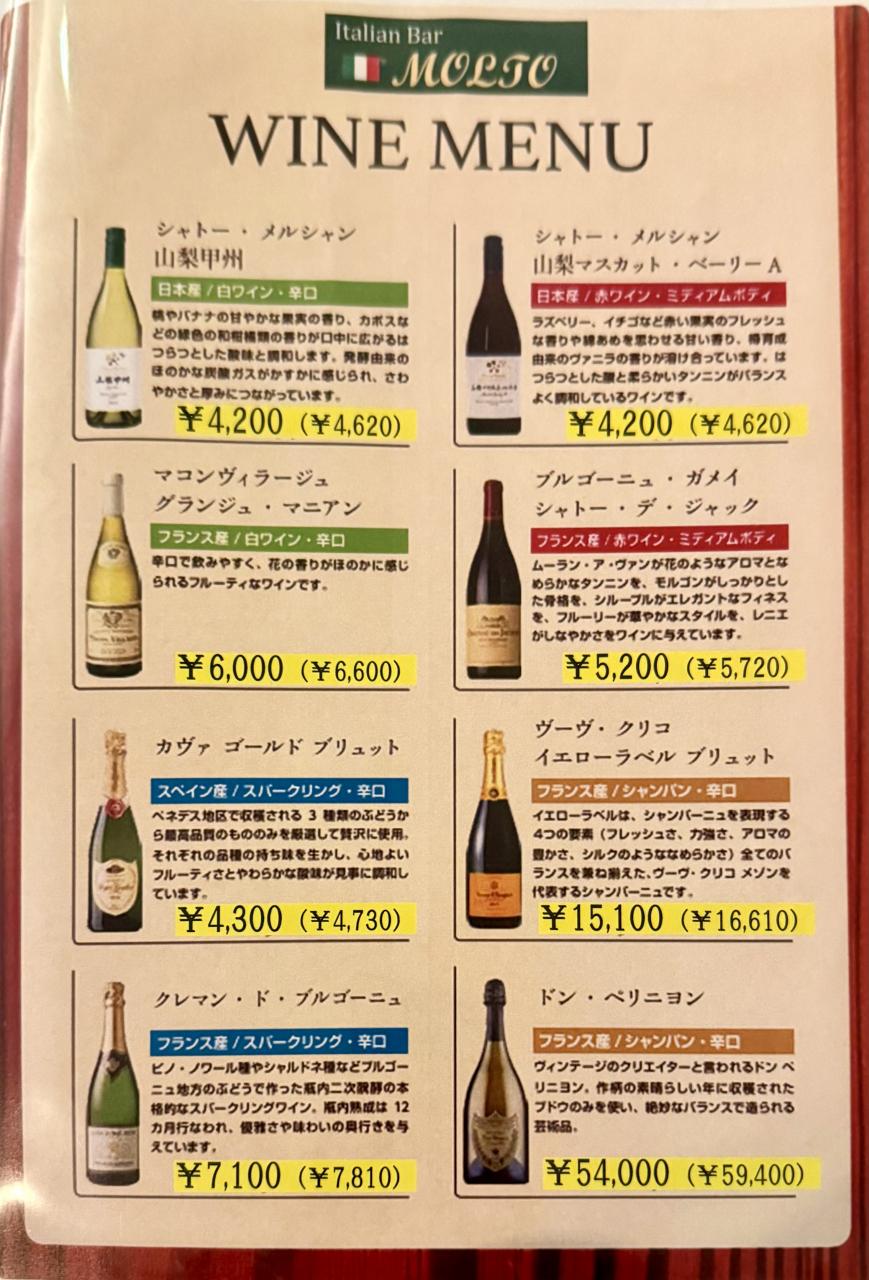 Italian Bar
MOLTO
WINE MENU
シャトー・メルシャン
山梨甲州
日本産 / 白ワイン・辛口
桃やバナナの甘やかな果実の香り、カボスな
どの緑色の和柑橘類の香りが口中に広がるは
つらつとした酸味と調和します。発酵由来の
ほのかな炭酸ガスがかすかに感じられ、さわ
やかさと厚みにつながっています。
¥4,200 (¥4,620)
シャトー・メルシャン
山梨マスカット・ベーリーA
日本産 / 赤ワイン・ミディアムボディ
ラズベリー、イチゴなど赤い果実のフレッシュ
な香りや綿あめを思わせる甘い香り、樽育成
由来のヴァニラの香りが溶け合っています。は
つらつとした酸と柔らかいタンニンがバランス
よく調和しているワインです。
¥4,200 (¥4,620)
マコンヴィラージュ
グランジュ・マニアン
フランス産 / 白ワイン・辛口
辛口で飲みやすく、花の香りがほのかに感じ
られるフルーティなワインです。
¥6,000 (¥6,600)
ブルゴーニュ・ガメイ
シャトー・デ・ジャック
フランス産 / 赤ワイン・ミディアムボディ
ムーラン・ア・ヴァンが花のようなアロマとな
めらかなタンニンを、モルゴンがしっかりとし
た骨格を、シルーブルがエレガントなフィネス
を、フルーリーが華やかなスタイルを、レニエ
がしなやかさをワインに与えています。
¥5,200 (¥5,720)
カヴァ ゴールド ブリュット
スペイン産 / スパークリング・辛口
ペネデス地区で収穫される 3 種類のぶどうか
ら最高品質のもののみを厳選して贅沢に使用。
それぞれの品種の持ち味を生かし、心地よい
フルーティさとやわらかな酸味が見事に調和し
ています。
¥4,300 (¥4,730)
ヴーヴ・クリコ
イエローラベル ブリュット
フランス産 / シャンパン・辛口
イエローラベルは、シャンパーニュを表現する
4つの要素（フレッシュさ、力強さ、アロマの
豊かさ、シルクのようななめらかさ）全てのバ
ランスを兼ね揃えた、ヴーヴ・クリコ メゾンを
代表するシャンパーニュです。
¥15,100 (¥16,610)
クレマン・ド・ブルゴーニュ
フランス産 / スパークリング・辛口
ピノ・ノワール種やシャルドネ種などブルゴー
ニュ地方のぶどうで作った瓶内二次醗酵の本
格的なスパークリングワイン。瓶内熟成は 12
カ月行なわれ、優雅さや味わいの奥行きを与
えています。
¥7,100 (¥7,810)
ドン・ペリニヨン
フランス産 / シャンパン・辛口
ヴィンテージのクリエイターと言われるドン ペ
リニヨン。作柄の素晴らしい年に収穫された
ブドウのみを使い、絶妙なバランスで造られる
芸術品。
¥54,000 (¥59,400)